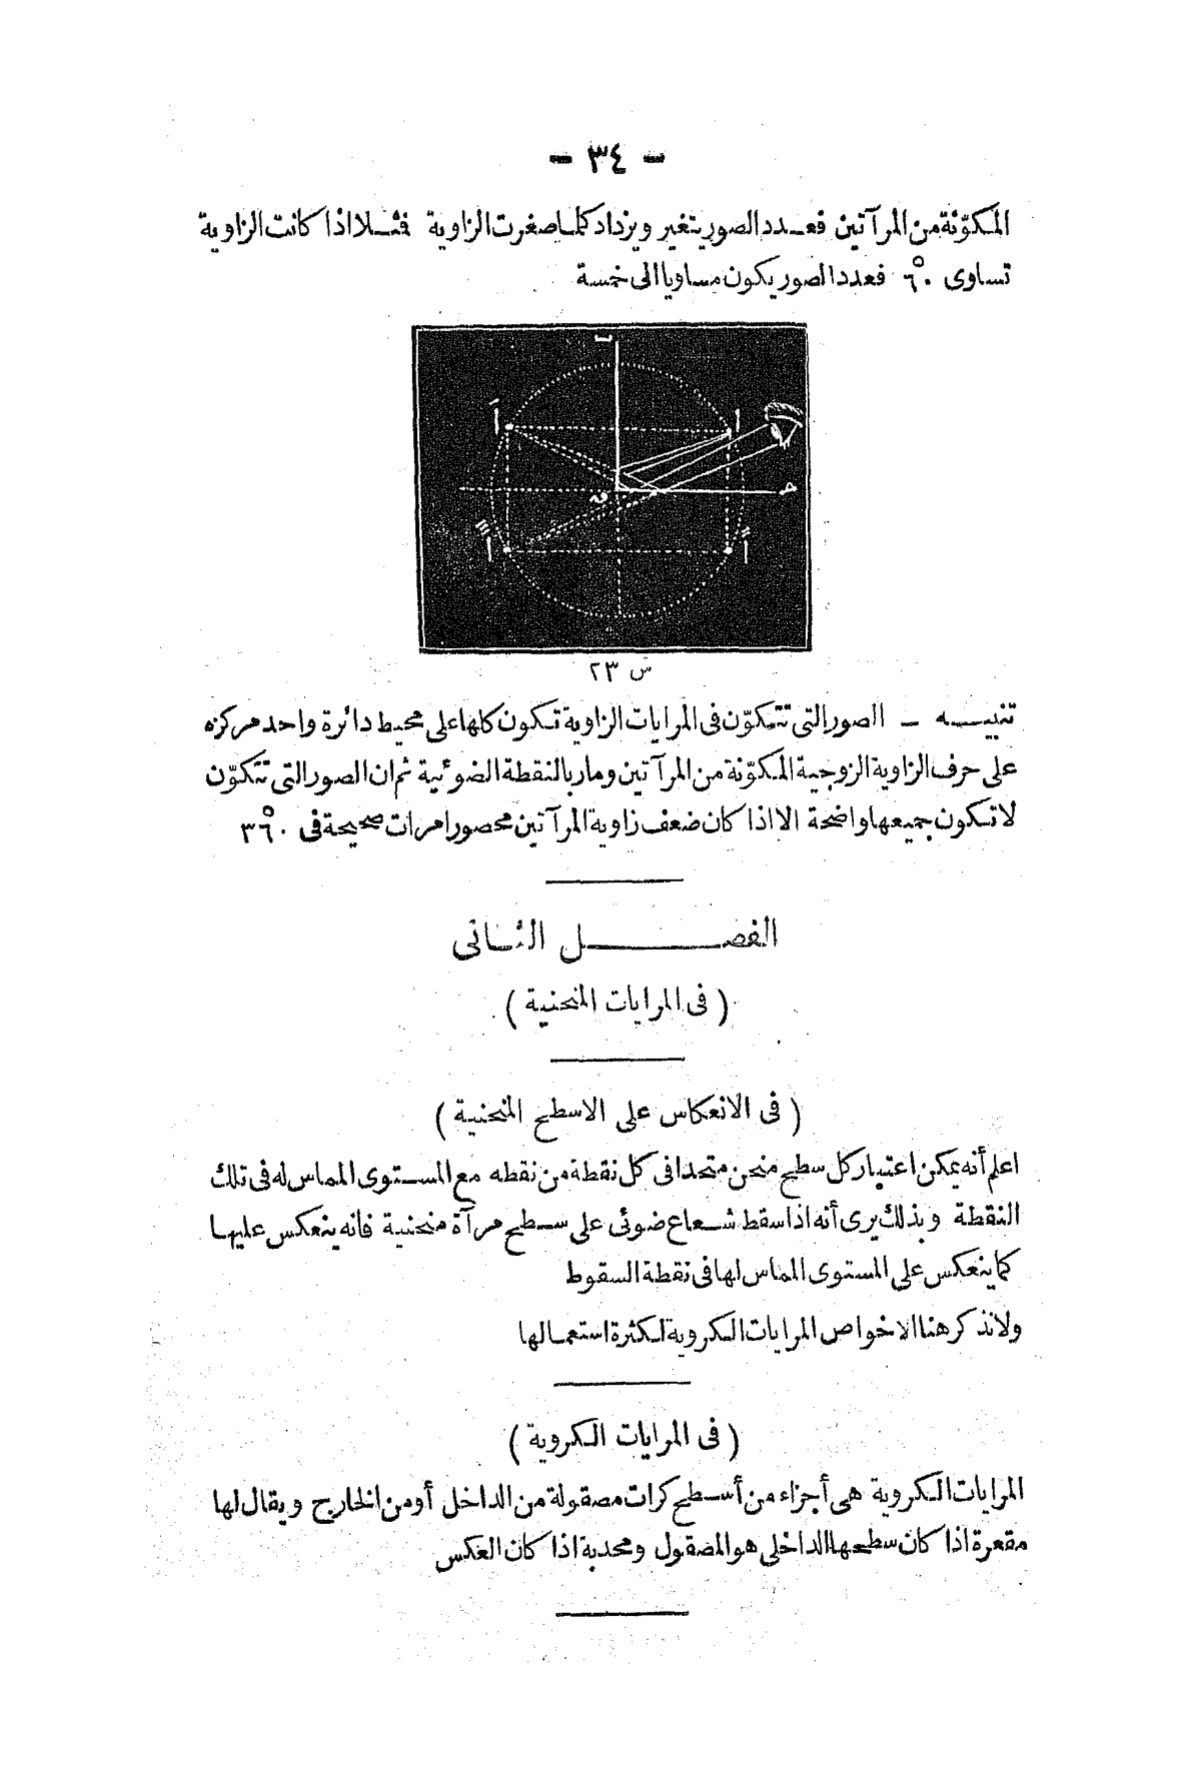 - ٣٤ -
المكوّنة من المرآتين فعدد الصور يتغير ويزداد كلما صغرت الزاوية فمثلا اذا كانت الزاوية
تساوى ٦٠° فعدد الصور يكون مساويا الى خمسة
ش ٢٣
تنبيه - الصور التى تتكوّن فى المرايات الزاوية تكون كلها على محيط دائرة واحد مركزه
على حرف الزاوية الزوجية المكوّنة من المرآتين ومار بالنقطة الضوئية ثم ان الصور التى تتكوّن
لا تكون جميعها واضحة الا اذا كان ضعف زاوية المرآتين محصورا مرات صحيحة فى ٣٦٠°
الفصل الثانى
( فى المرايات المنحنية )
( فى الانعكاس على الاسطح المنحنية )
اعلم أنه يمكن اعتبار كل سطح منحن متحدا فى كل نقطة من نقطه مع المستوى المماس له فى تلك
النقطة وبذلك يرى أنه اذا سقط شعاع ضوئى على سطح مرآة منحنية فانه ينعكس عليها
كما ينعكس على المستوى المماس لها فى نقطة السقوط
ولا نذكر هنا الا خواص المرايات الكروية لكثرة استعمالها
( فى المرايات الكروية )
المرايات الكروية هى أجزاء من أسطح كرات مصقولة من الداخل أو من الخارج ويقال لها
مقعرة اذا كان سطحها الداخلى هو المصقول ومحدبة اذا كان العكس